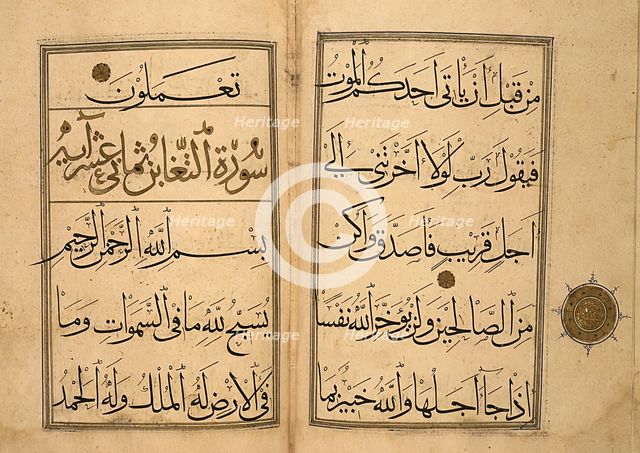 من قبل أن يأتى أحدكم الموت
فيقول رب لولا أخرتنى إلى
أجل قريب فأصدق وأكن
من الصالحين ولن يؤخر الله نفسا
إذا جاء أجلها والله خبير بما
تعملون
سورة التغابن ثمانى عشر آية
بسم الله الرحمن الرحيم
يسبح لله ما فى السموات وما
فى الأرض له الملك وله الحمد
Heritage
Heritage
Heritage
Heritage
Heritage
Heritage